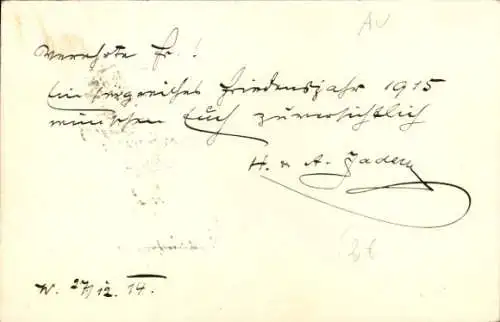 Verehrte Fr.!
Ein siegreiches Friedensjahr 1915
wünschen Euch zuversichtlich
H. & A. Zadery
W. 27/12. 14.